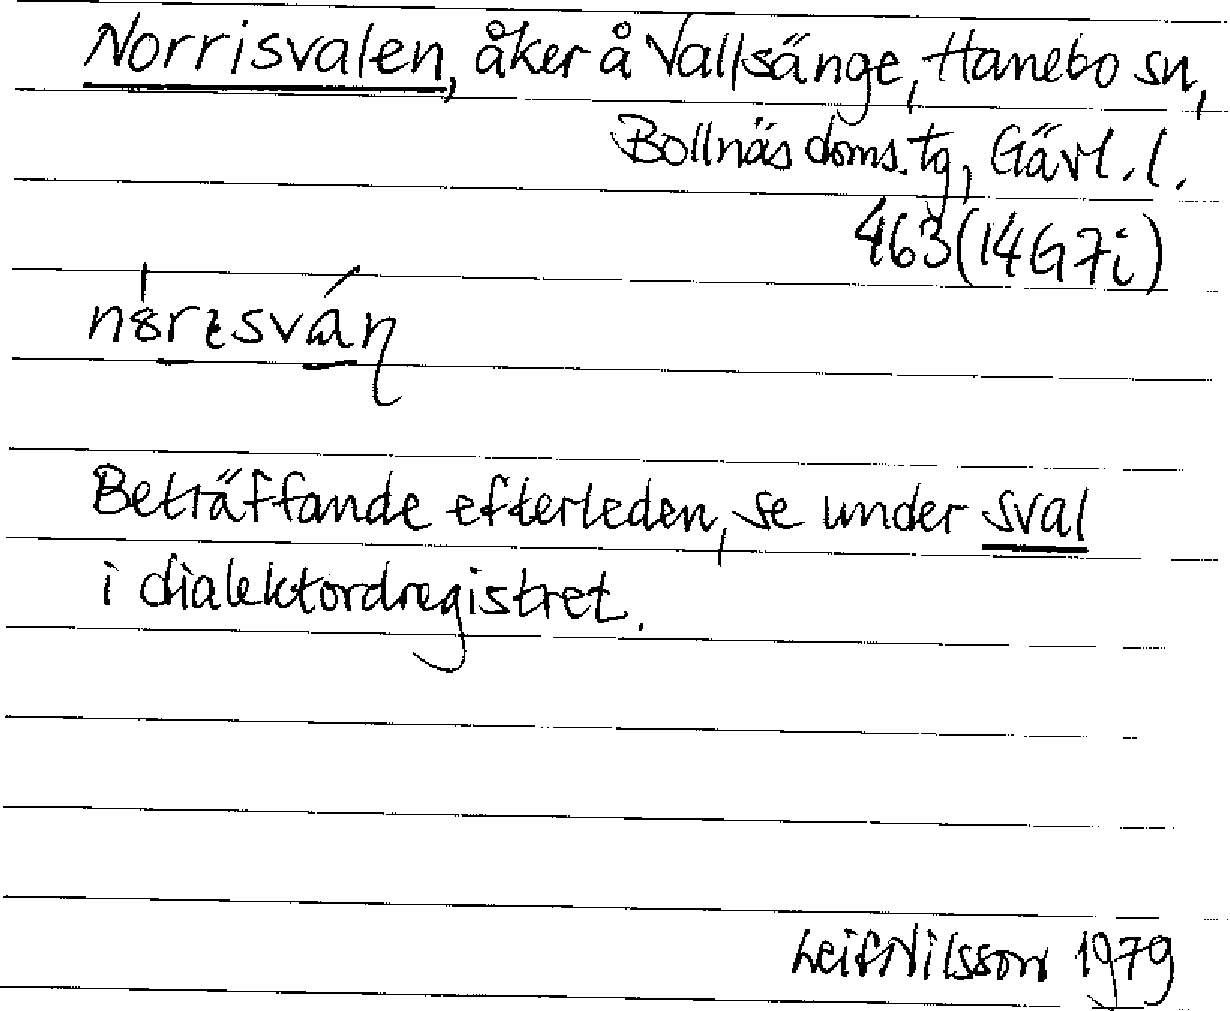 Norrisvalen, åker å Vallsänge, Hanebo sn,
Bollnäs doms. tg, Gävl. l.
463 (14G7i)
Beträffande efterleden, se under sval
i dialektordregistret.
Leif Nilsson 1979